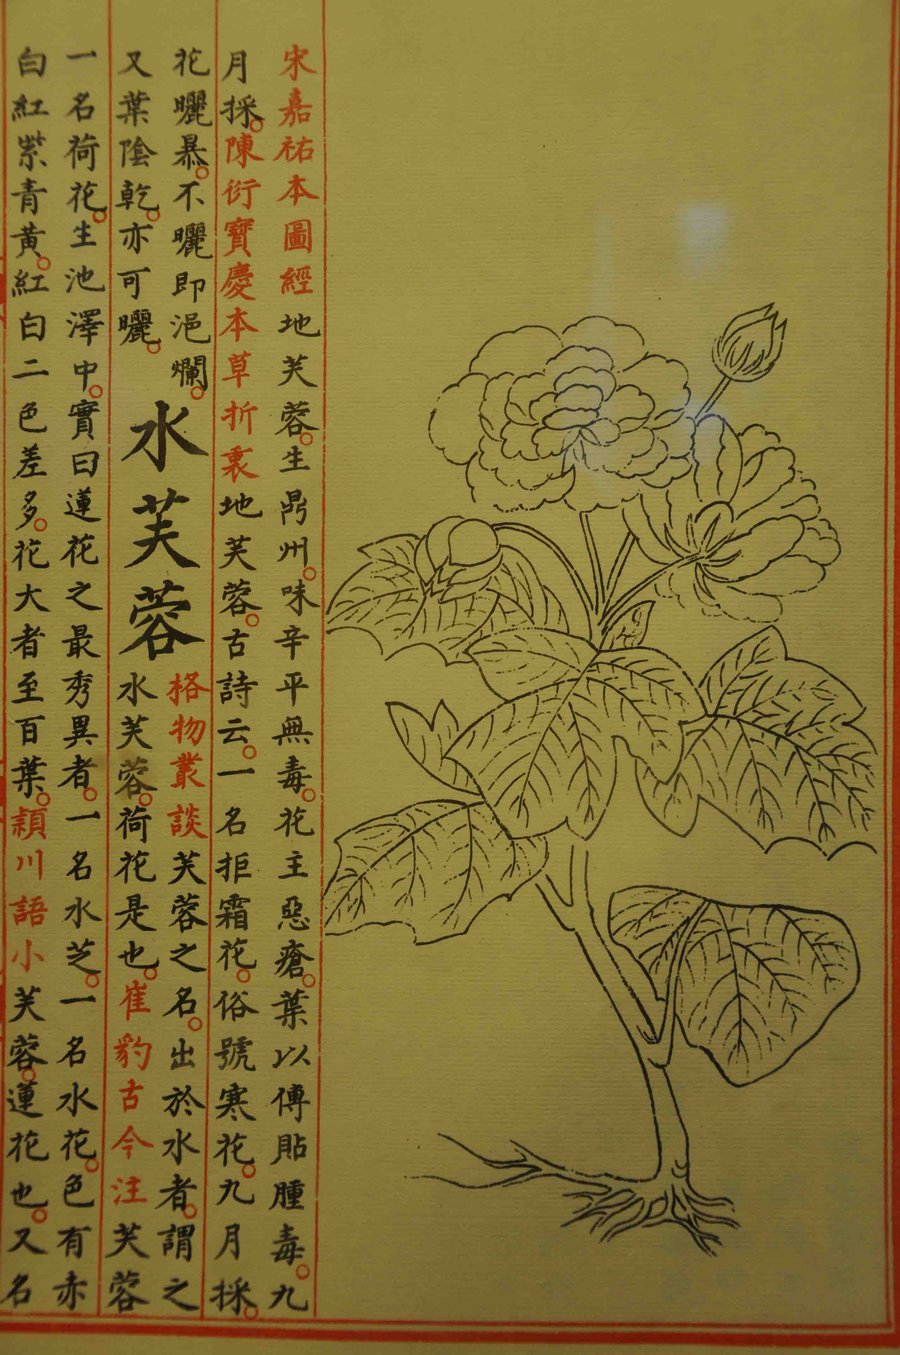 宋嘉祐本圖經地芙蓉。生鼎州。味辛平無毒。花主惡瘡。葉以傅貼腫毒。九
月採。陳衍寶慶本草折衷地芙蓉。古詩云。一名拒霜花。俗號寒花。九月採。
花曬暴。不曬即浥爛。
又葉陰乾。亦可曬。
水芙蓉
格物叢談芙蓉之名。出於水者。謂之
水芙蓉。荷花是也。崔豹古今注芙蓉
一名荷花。生池澤中。實曰蓮花之最秀異者。一名水芝。一名水花。色有赤
白紅紫青黃。紅白二色差多。花大者至百葉。頴川語小芙蓉。蓮花也。又名